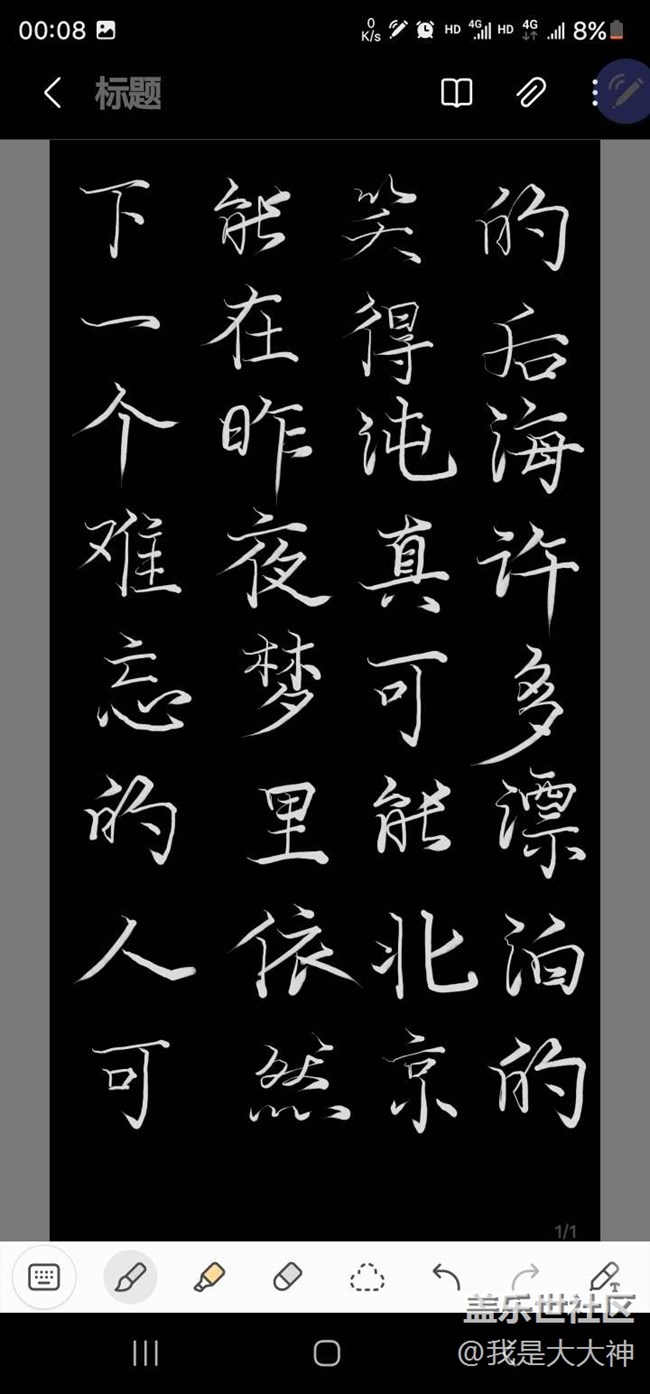 00:08
0 K/s HD 4G HD 4G 8%
标题
下一个难忘的人可
能在昨夜梦里依然
笑得沌真可能北京
的后海许多漂泊的
1/1
盖乐世社区
@我是大大神